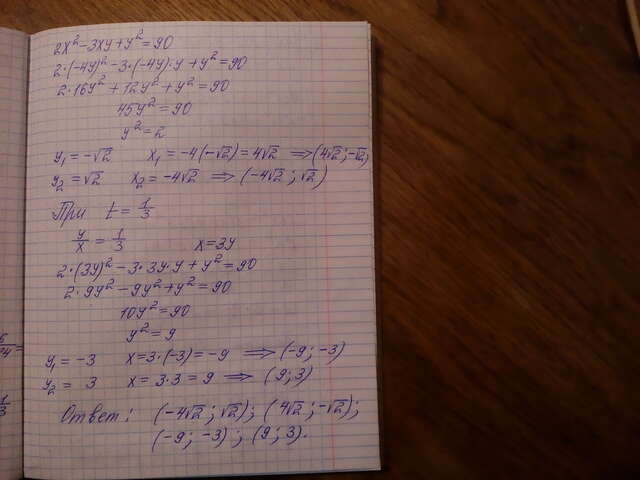 2x²-3xy+y²=90
2·(-4y)²-3·(-4y)·y+y²=90
2·16y²+12y²+y²=90
45y²=90
y²=2
y₁=-√2 x₁=-4(-√2)=4√2 ⇒(4√2;-√2)
y₂=√2 x₂=-4√2 ⇒(-4√2;√2)
При t=1/3
y/x=1/3 x=3y
2·(3y)²-3·3y·y+y²=90
2·9y²-9y²+y²=90
10y²=90
y²=9
y₁=-3 x=3·(-3)=-9 ⇒(-9;-3)
y₂=3 x=3·3=9 ⇒(9;3)
Ответ: (-4√2;√2);(4√2;-√2);
(-9;-3);(9;3).